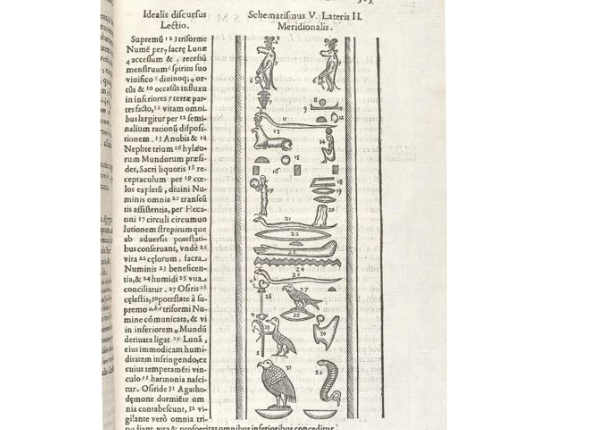 Idealis discursus
Lectio.
Schematismus V. Lateris II.
Meridionalis.
Supremũ 1 2 triforme
Numē per 3 sacrę Lunæ
4 accessum & 5 recessũ
menstruum 6 spiritu suo
vivifico 7 divinoq; 8 or-
tũs & 10 occasũs influxu
in inferiores 7 terræ par-
tes facto, 11 vitam omni
bus largitur per 12 semi-
nalium rationũ disposi-
tionem. 13 Anubis & 14
Nephte trium 16 hylæo-
rum Mundorum præsi-
des, Sacri liquoris 18 re-
ceptaculum per 19 cœ-
los explent, divini Nu-
minis omnia 20
tis assistentia, per Heca-
tini 17 circuli circumvo
lutionem strepitumque
ab adversis potestati-
bus conservans, vnde 21
vita 22 cœlorum sacra
Numinis 23 beneficen-
tia, & 24 humidi 25 vita
conciliatur. 27 Osiris 28
cęlestis, 30 potestate à su-
premo triformi Nu-
mine cõmunicata, & vi
in inferiorem Mundũ
derivata ligat Lunã,
eius immodicam humi-
ditatem infringendo, ex
cuius temperamēti vin-
culo 12 harmonia nasci
tur. Osiride 31 Agatho-
dęmone dormiēte om
nia contabescunt, 32 vi-
gilante verò omnia
vita & prosperitas omnibus inferioribus conceditur.